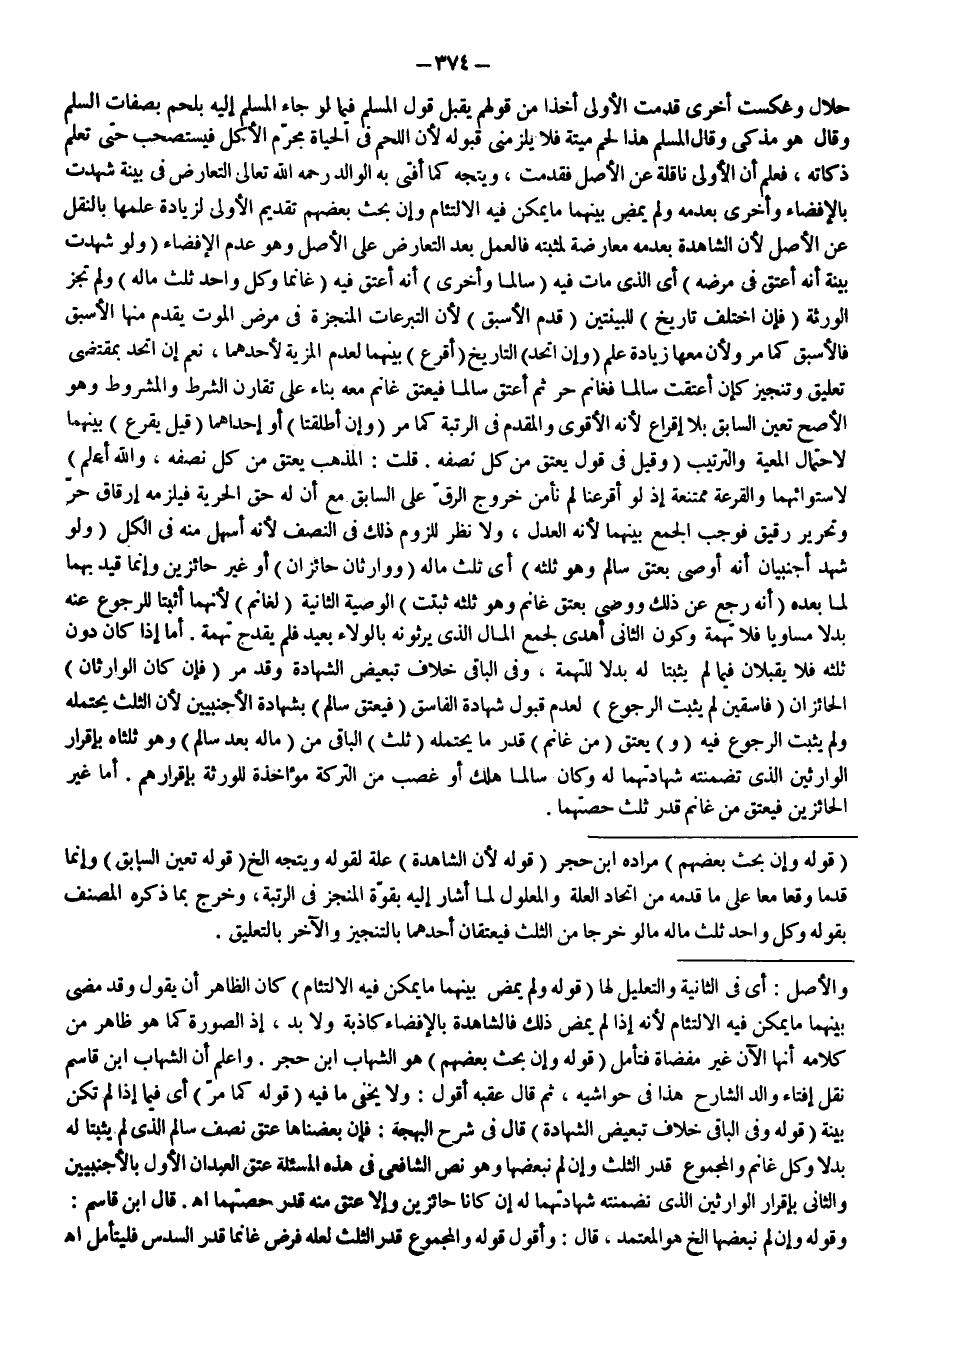 – ٣٧٤ –
حلال وعكست أخرى قدمت الأولى أخذا من قولهم يقبل قول المسلم فيما لو جاء المسلم إليه بلحم بصفات السلم
وقال هو مذكى وقال المسلم هذا لحم ميتة فلا يلزمنى قبوله لأن اللحم فى الحياة محرّم الأكل فيستصحب حتى تعلم
ذكاته ، فعلم أن الأولى ناقلة عن الأصل فقدمت ، ويتجه كما أفتى به الوالد رحمه الله تعالى التعارض فى بينة شهدت
بالإفضاء وأخرى بعدمه ولم يمض بينهما مايمكن فيه الالتئام وإن بحث بعضهم تقديم الأولى لزيادة علمها بالنقل
عن الأصل لأن الشاهدة بعدمه معارضة لمثبته فالعمل بعد التعارض على الأصل وهو عدم الإفضاء ( ولو شهدت
بينة أنه أعتق فى مرضه ) أى الذى مات فيه ( سالما وأخرى ) أنه أعتق فيه ( غانما وكل واحد ثلث ماله ) ولم تجز
الورثة ( فإن اختلف تاريخ ) للبينتين ( قدم الأسبق ) لأن التبرعات المنجزة فى مرض الموت يقدم منها الأسبق
فالأسبق كما مر ولأن معها زيادة علم ( وإن اتحد) التاريخ ( أقرع ) بينهما لعدم المزية لأحدهما ، نعم إن اتحد بمقتضى
تعليق وتنجيز كإن أعتقت سالما فغانم حر ثم أعتق سالما فيعتق غانم معه بناء على تقارن الشرط والمشروط وهو
الأصح تعين السابق بلا إقراع لأنه الأقوى والمقدم فى الرتبة كما مر ( وإن أطلقتا ) أو إحداهما ( قيل يقرع ) بينهما
لاحتمال المعية والترتيب ( وقيل فى قول يعتق من كل نصفه . قلت : المذهب يعتق من كل نصفه ، والله أعلم )
لاستوائهما والقرعة ممتنعة إذ لو أقرعنا لم نأمن خروج الرقّ على السابق مع أن له حق الحرية فيلزمه إرقاق حرّ
وتحرير رقيق فوجب الجمع بينهما لأنه العدل ، ولا نظر للزوم ذلك فى النصف لأنه أسهل منه فى الكل ( ولو
شهد أجنبيان أنه أوصى بعتق سالم وهو ثلثه ) أى ثلث ماله ( ووارثان حائزان ) أو غير حائزين وإنما قيد بهما
لما بعده ( أنه رجع عن ذلك ووصى بعتق غانم وهو ثلثه ثبتت ) الوصية الثانية ( لغانم ) لأنهما أثبتا للرجوع عنه
بدلا مساويا فلا تهمة وكون الثانى أهدى لجمع المال الذى يرثونه بالولاء بعيد فلم يقدح تهمة . أما إذا كان دون
ثلثه فلا يقبلان فيما لم يثبتا له بدلا للتهمة ، وفى الباقى خلاف تبعيض الشهادة وقد مر ( فإن كان الوارثان )
الحائزان ( فاسقين لم يثبت الرجوع ) لعدم قبول شهادة الفاسق ( فيعتق سالم ) بشهادة الأجنبيين لأن الثلث يحتمله
ولم يثبت الرجوع فيه ( و ) يعتق ( من غانم ) قدر ما يحتمله ( ثلث ) الباقى من ( ماله بعد سالم ) وهو ثلثاه بإقرار
الوارثين الذى تضمنته شهادتهما له وكان سالما هلك أو غصب من التركة مؤاخذة للورثة بإقرارهم . أما غير
الحائزين فيعتق من غانم قدر ثلث حصتهما .
( قوله وإن بحث بعضهم ) مراده ابن حجر ( قوله لأن الشاهدة ) علة لقوله ويتجه الخ ( قوله تعين السابق ) وإنما
قدما وقعا معا على ما قدمه من اتحاد العلة والمعلول لما أشار إليه بقوّة المنجز فى الرتبة ، وخرج بما ذكره المصنف
بقوله وكل واحد ثلث ماله مالو خرجا من الثلث فيعتقان أحدهما بالتنجيز والآخر بالتعليق .
والأصل : أى فى الثانية والتعليل لها ( قوله ولم يمض بينهما مايمكن فيه الالتئام ) كان الظاهر أن يقول وقد مضى
بينهما مايمكن فيه الالتئام لأنه إذا لم يمض ذلك فالشاهدة بالإفضاء كاذبة ولا بد ، إذ الصورة كما هو ظاهر من
كلامه أنها الآن غير مفضاة فتأمل ( قوله وإن بحث بعضهم ) هو الشهاب ابن حجر . واعلم أن الشهاب ابن قاسم
نقل إفتاء والد الشارح هذا فى حواشيه ، ثم قال عقبه أقول : ولا يخفى ما فيه ( قوله كما مرّ ) أى فيما إذا لم تكن
بينة ( قوله وفى الباقى خلاف تبعيض الشهادة ) قال فى شرح البهجة : فإن بعضناها عتق نصف سالم الذى لم يثبتا له
بدلا وكل غانم والمجموع قدر الثلث وإن لم نبعضها وهو نص الشافعى فى هذه المسئلة عتق العبدان الأول بالأجنبيين
والثانى بإقرار الوارثين الذى تضمنته شهادتهما له إن كانا حائزين وإلا عتق منه قدر حصتهما اه . قال ابن قاسم :
وقوله وإن لم نبعضها الخ هو المعتمد ، قال : وأقول قوله والمجموع قدر الثلث لعله فرض غانما قدر السدس فليتأمل اه